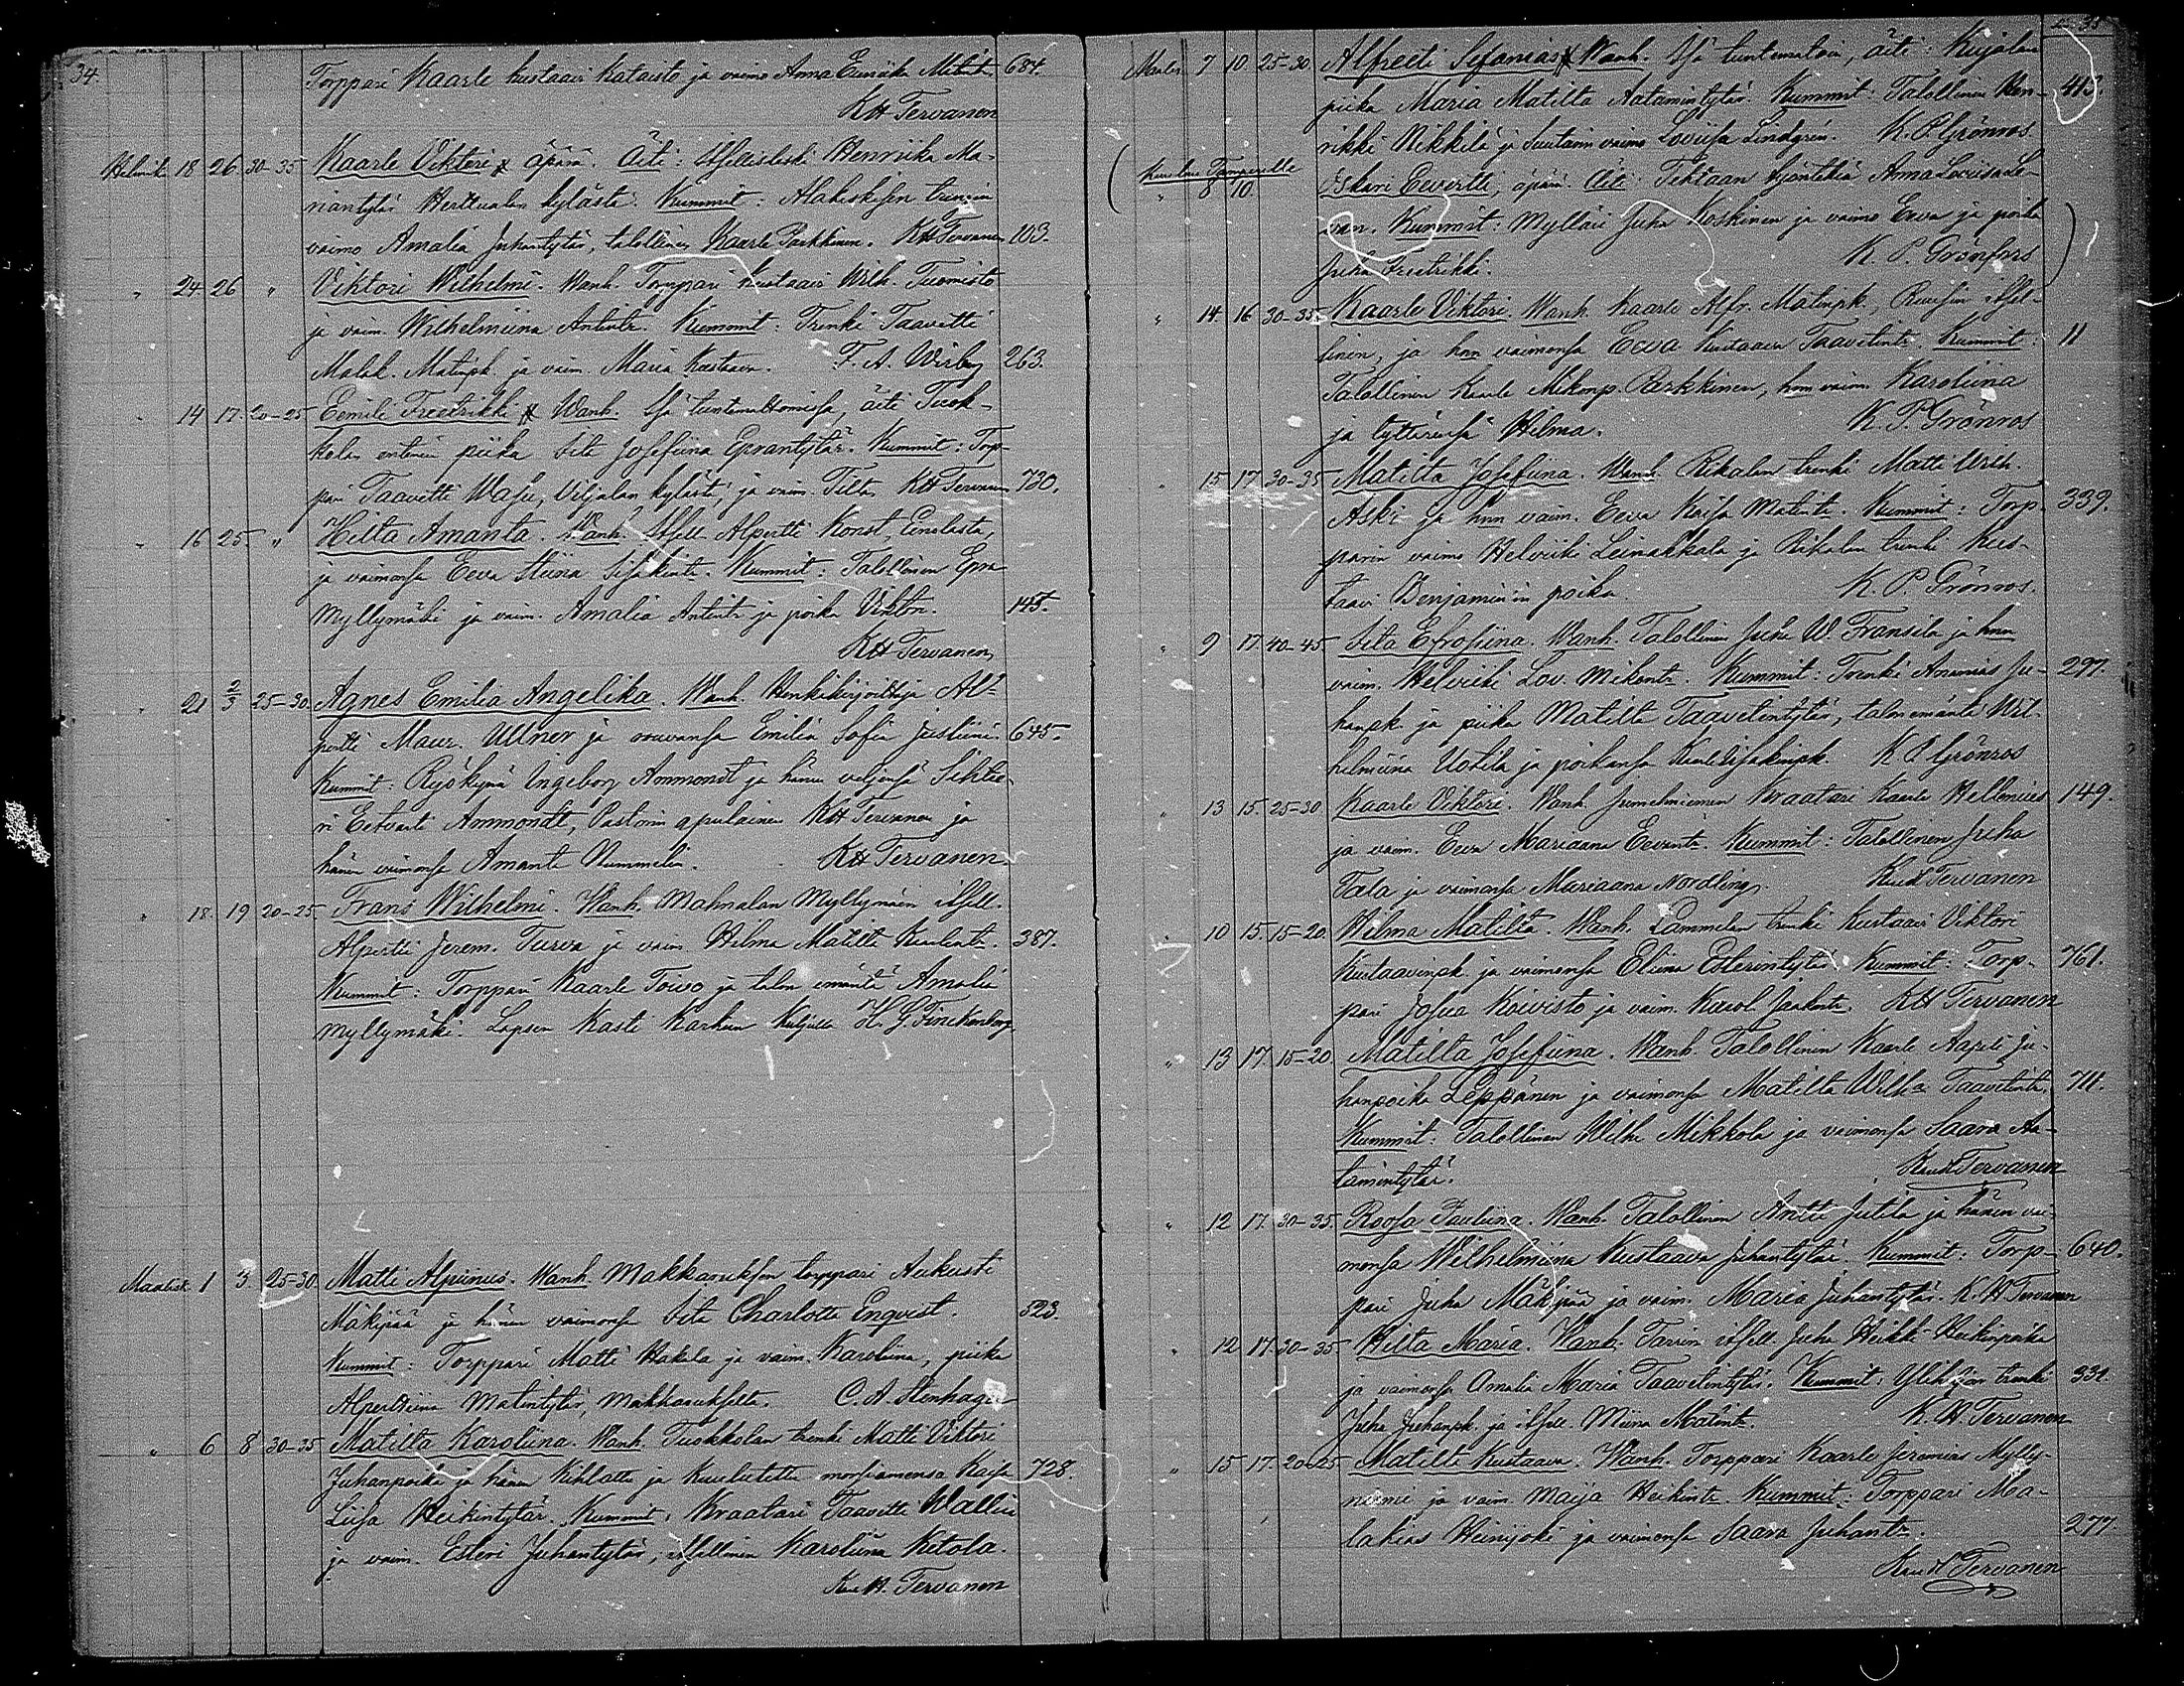 34.
Torppari Kaarle Kustaavi Kataisto ja vaimo Anna Matint. 684.
KH Tervanen
Helmik. 18 26 30-35 Kaarle Viktori äpärä. Äiti: Itsellisleski Henriika Ma-
niantytär Herttualan kylästä. Kummit: trengin
vaimo Amalia Juhantytär, talollinen Kaarle Parkkinen. KH Tervanen 103.
" 24. 26 " Viktori Wilhelmi. Wanh. Torppari Kustaavi Wilh. Tuomisto
ja vaim. Wilhelmiina Antintr. Kummit: Trenki Taavetti
Malak. Matinpk. ja vaim. Maria Kustaava. F. A. Wirberg 263.
" 14 17. 20-25 Eemili Freetrikki Wanh. Isä tuntemattomissa, äiti Tuok-
kolan entinen piika Iita Josefiina Eprantytär. Kummit: Torp-
pari Taavetti Wasu, Viljalan kylästä, ja vaim. Tilta. KH Tervanen 730.
" 16 25. " Hilta Amanta. Wanh. Itsell. Alpertti Konst.
ja vaimonsa Eeva Stiina Iisakintr. Kummit: Talollinen Epra
Myllymäki ja vaim. Amalia Antintr ja poika Viktor. 145.
KH Tervanen
" 21 2/3 25-30. Agnes Emilia Angelika. Wanh. Henkikirjoittaja Al-
pertti Maur. Ullner ja rouvansa Emilia Sofia Justiini 645.
Kummit: Ryökynä Ingeborg Ammondt ja hänen veljensä Sihtee-
ri Eetvarti Ammondt, Pastorin apulainen KH Tervanen ja
hänen vaimonsa Amanta Nummelin. KH Tervanen
" 18. 19 20-25. Frans Wilhelmi. Wanh. Mahnalan Myllymäen itsell.
Alpertti Jerem. Turva ja vaim. Hilma Matilta Kaalentr. 387.
Kummit: Torppari Kaarle Toivo ja talon emäntä Amalia
Myllymäki. Lapsen kasti Karkun H. G. Finckenberg
Maalisk. 1 3. 25-30. Matti Alpiinus. Wanh. Makkarusksen torppari Aukusti
Mäkipää ja hänen vaimonsa Iita Charlotta Enqvist. 523.
Kummit: Torppari Matti Hakala ja vaim. Karoliina, piika
Alpertiina Matintytär, Makkarukselta. C. A. Stenhagen
" 6 8 30-35 Matilta Karoliina. Wanh. Tuokkolan trenki Matti Viktori
Juhanpoika ja hänen kihlattu ja kuulutettu morsiamensa Kaisa 728.
Liisa Heikintytär. Kummit: Kraatari Taavetti Wallin
ja vaim. Esteri Juhantytär, itsellinen Karoliina Ketola.
Kaa H. Tervanen
35
Maalis. 7 10 25-30 Alfreeti Sefanias Wanh. Isä tuntematoin, äiti: Kirjalan
piika Maria Matilta Aatamintytär. Kummit: Talollinen Hen- 413.
rikki Nikkilä ja Suutarin vaimo Loviisa Lindgren. K. P. Grönros
Tampereella
" 8 10. Oskari Eevertti, äpärä. Äiti: Tehtaan työntekiä Anna Loviisa Le-
van. Kummit: Mylläri Juha Koskinen ja vaimo Eeva ja poika
Juha Freetrikki. K. P. Grönfors
" 14. 16 30-35. Kaarle Viktori. Wanh. Kaarle Alfr. Matinpk, itsel-
linen, ja hnn vaimonsa Eeva Kustaava Taavetintr. Kummit: 11
Talollinen Kaarle Mikonp. Parkkinen, hnn vaim. Karoliina
ja tyttärensä Hilma. K. P. Grönros
" 15 17 30-35 Matilta Josefiina. Wanh. Rikalan trenki Matti Wilh.
Aski ja hnn vaim. Eeva Kaisa Matintr. Kummit: Torp- 339.
parin vaimo Helviiki Leinakkala ja Rikalan trenki Kus-
taavi Benjaminin poika. K. P. Grönros.
" 9 17. 40-45. Iita Efrosiina. Wanh. Talollinen Juha W. Fransila ja hnn
vaim. Helviiki Lov. Mikontr. Kummit: Trenki Ananias Ju- 297.
hanpk. ja piika Matilta Taavetintytär, talon emäntä Wil-
helmiina Uotila ja poikansa Kaarle Iisakinpk. K P Grönros
" 13 15. 25-30 Kaarle Viktori. Wanh. Jumelniemen Kraatari Kaarle Hellenius 149.
ja vaim. Eeva Mariaana Eevantr. Kummit: Talollinen Juha
Tala ja vaimonsa Mariaana Nordling. Kaa H Tervanen
" 10 15. 15-20. Hilma Matilta. Wanh. Lammelan trenki Kustaavi Viktori
Kustaavinpk. ja vaimonsa Eliina Esterintytär. Kummit: Torp- 761.
pari Josua Koivisto ja vaim. Karol. Jaakontr. KH Tervanen
" 13 17. 15-20 Matilta Josefiina. Wanh. Talollinen Kaarle Aapeli Ju-
hanpoika Leppänen ja vaimonsa Matilta Wilh:a Taavetintr. 711.
Kummit: Talollinen Wilhe Mikkola ja vaimonsa Saara Aa-
tamintytär. Kaa H Tervanen
" 12 17. 30-35. Roosa Pauliina. Wanh. Talollinen Antti Jutila ja hänen vai-
monsa Wilhelmiina Kustaava Juhantytär. Kummit: Torp- 640.
pari Juha Mäkipää ja vaim. Maria Juhantytär. K. H. Tervanen
" 12 17. 30-35 Hilta Maria. Wanh. itsell. Juha Heikki Heikinpoika
ja vaimonsa Amalia Maria Taavetintytär. Kummit: trenki 331.
Juha Juhanpk. ja itsell. Miina Matintr. K. H. Tervanen
" 15 17. 20-25 Matilta Kustaava. Wanh. Torppari Kaarle Jeremias Mylly-
niemi ja vaim. Maija Heikintr. Kummit: Torppari Maa-
lakias Heinijoki ja vaimonsa Saara Juhantr. 277.
Kaa H Tervanen